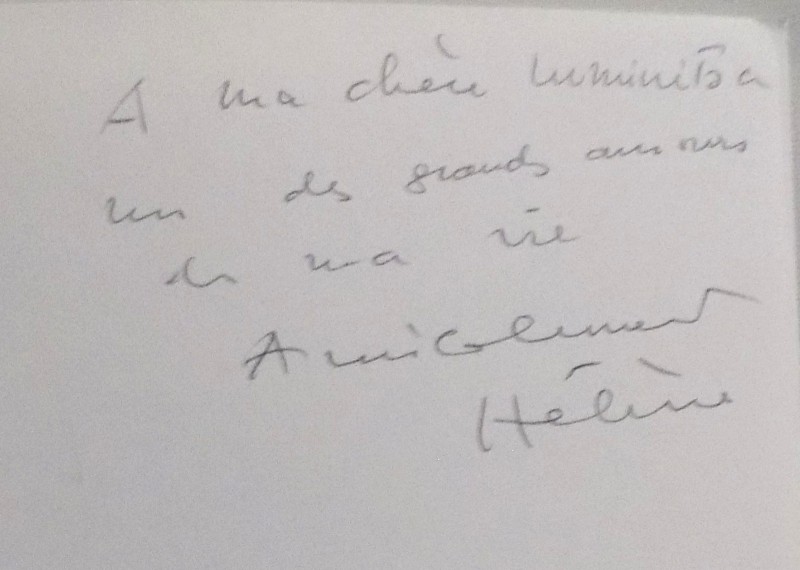 A ma chère Luminitsa
un des grands amours
de ma vie
Amicalement
Hélène